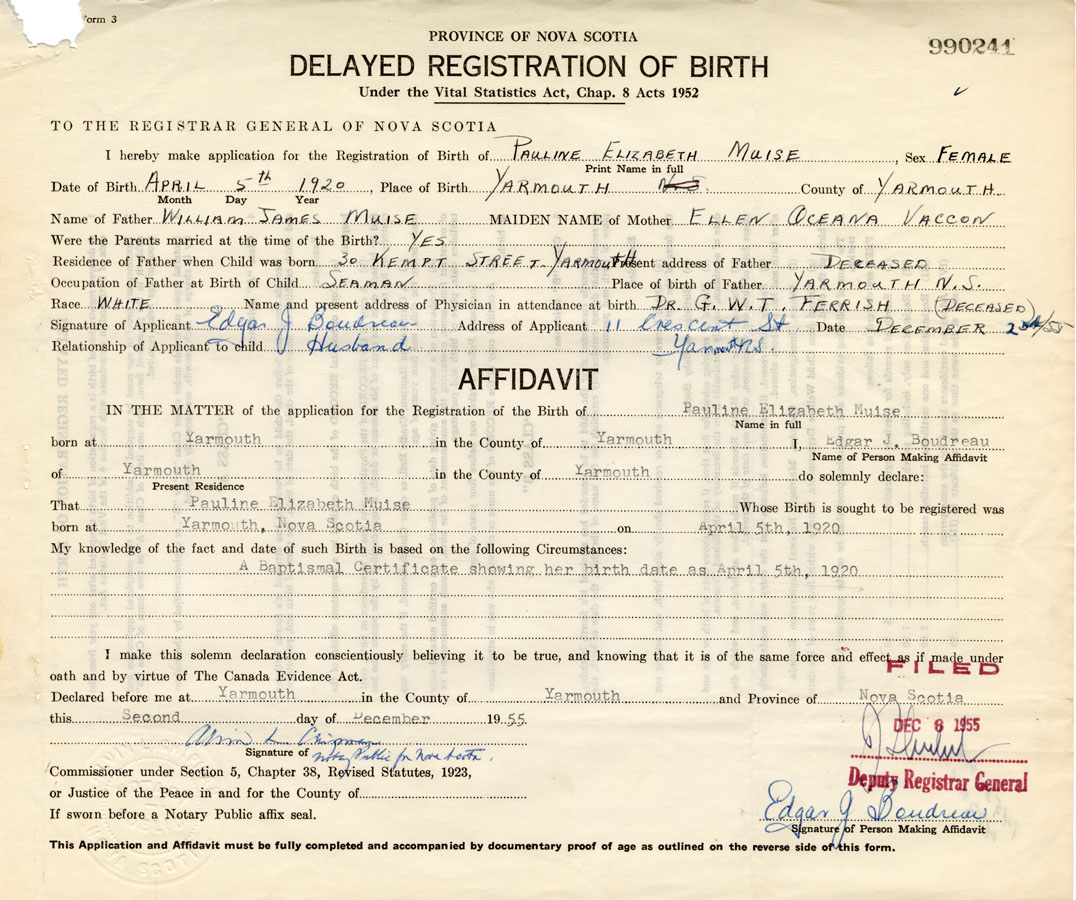 Form 3
PROVINCE OF NOVA SCOTIA
990241
DELAYED REGISTRATION OF BIRTH
Under the Vital Statistics Act, Chap. 8 Acts 1952
TO THE REGISTRAR GENERAL OF NOVA SCOTIA
I hereby make application for the Registration of Birth of PAULINE ELIZABETH MUISE, Sex FEMALE
Print Name in full
Date of Birth APRIL 5th 1920, Place of Birth YARMOUTH N.S. County of YARMOUTH
Month Day Year
Name of Father WILLIAM JAMES MUISE MAIDEN NAME of Mother ELLEN OCEANA VACCON
Were the Parents married at the time of the Birth? YES
Residence of Father when Child was born 30 KEMPT STREET YARMOUTH Present address of Father DECEASED
Occupation of Father at Birth of Child SEAMAN Place of birth of Father YARMOUTH N.S.
Race WHITE Name and present address of Physician in attendance at birth DR. G. W. T. FERRISH (DECEASED)
Signature of Applicant Edgar J Boudreau Address of Applicant 11 Crescent St Date DECEMBER 2nd/55
Relationship of Applicant to child Husband Yarmouth N.S.
AFFIDAVIT
IN THE MATTER of the application for the Registration of the Birth of Pauline Elizabeth Muise
Name in full
born at Yarmouth in the County of Yarmouth I, Edgar J. Boudreau
Name of Person Making Affidavit
of Yarmouth in the County of Yarmouth do solemnly declare:
Present Residence
That Pauline Elizabeth Muise Whose Birth is sought to be registered was
born at Yarmouth, Nova Scotia on April 5th, 1920
My knowledge of the fact and date of such Birth is based on the following Circumstances:
A Baptismal Certificate showing her birth date as April 5th, 1920
I make this solemn declaration conscientiously believing it to be true, and knowing that it is of the same force and effect as if made under
oath and by virtue of The Canada Evidence Act.
FILED
Declared before me at Yarmouth in the County of Yarmouth and Province of Nova Scotia
this Second day of December 1955
DEC 6 1955
Signature of Notary Public for Nova Scotia.
Commissioner under Section 5, Chapter 38, Revised Statutes, 1923,
Deputy Registrar General
or Justice of the Peace in and for the County of
Edgar J Boudreau
If sworn before a Notary Public affix seal.
Signature of Person Making Affidavit
This Application and Affidavit must be fully completed and accompanied by documentary proof of age as outlined on the reverse side of this form.